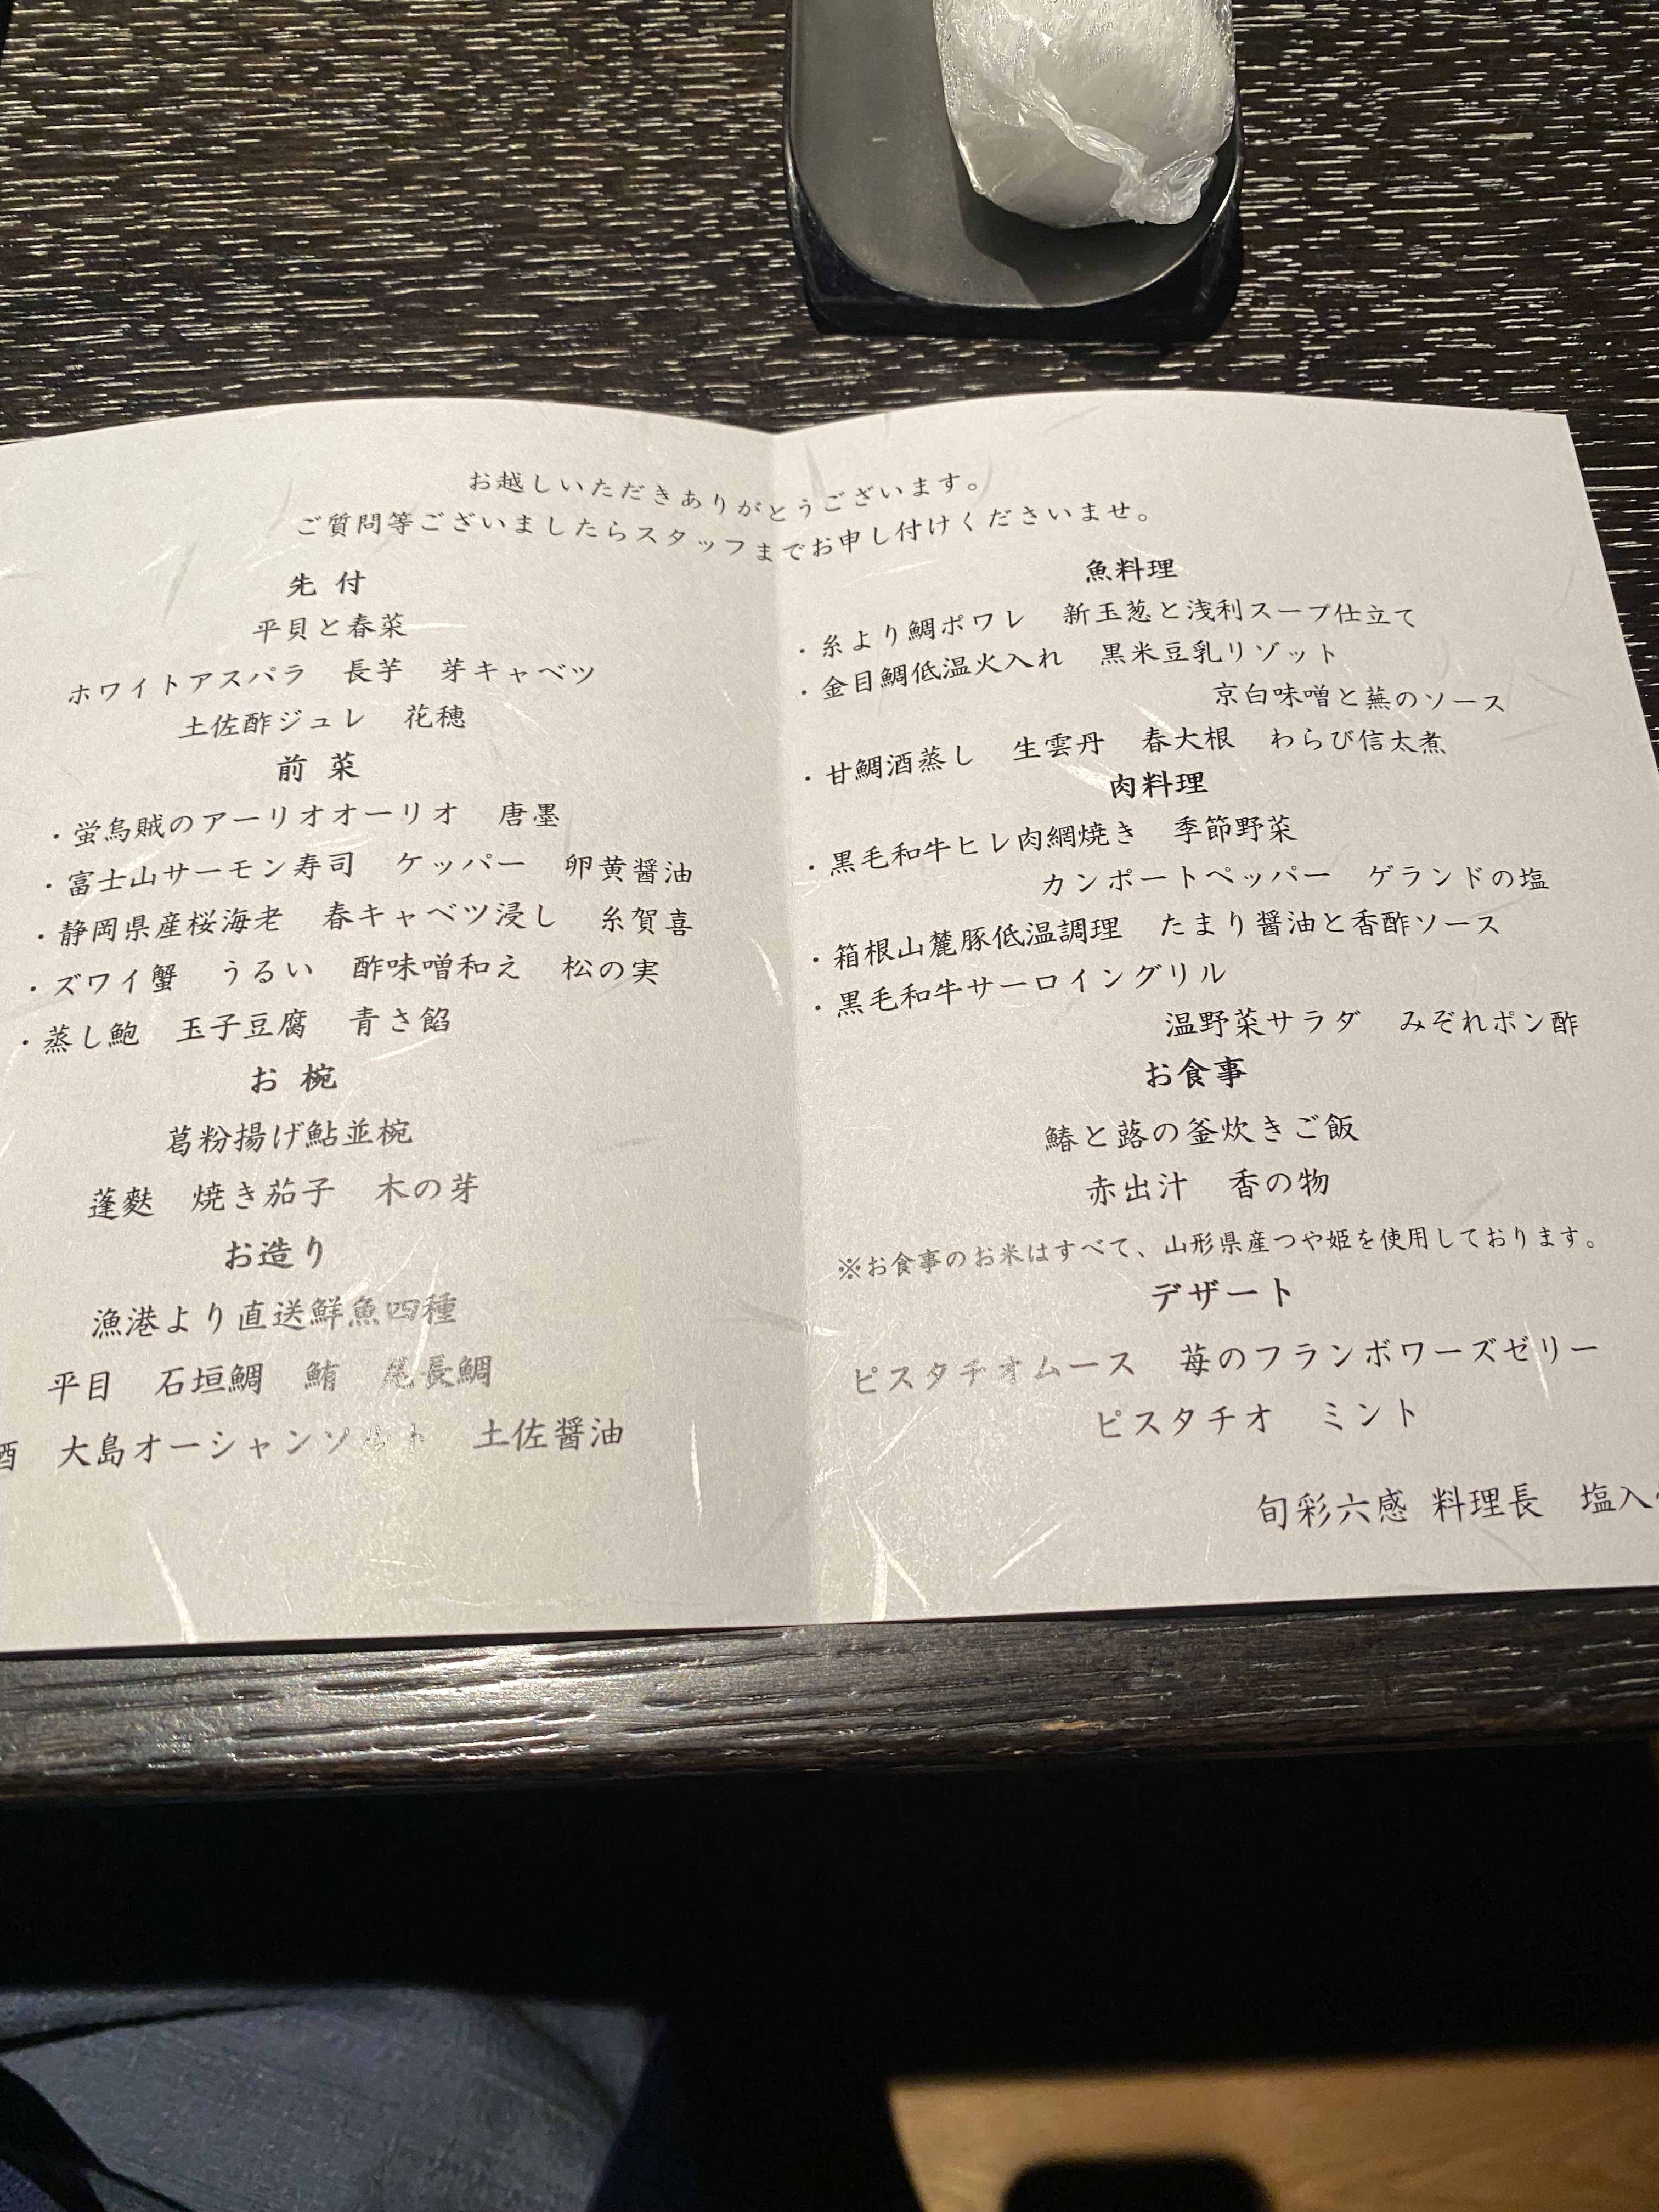 お越しいただきありがとうございます。
ご質問等ございましたらスタッフまでお申し付けくださいませ。
先 付
平貝と春菜
ホワイトアスパラ 長芋 芽キャベツ
土佐酢ジュレ 花穂
前 菜
・蛍烏賊のアーリオオーリオ 唐墨
・富士山サーモン寿司 ケッパー 卵黄醤油
・静岡県産桜海老 春キャベツ浸し 糸賀喜
・ズワイ蟹 うるい 酢味噌和え 松の実
・蒸し鮑 玉子豆腐 青さ餡
お 椀
葛粉揚げ鮎並椀
蓬麩 焼き茄子 木の芽
お造り
漁港より直送鮮魚四種
平目 石垣鯛 鮪 尾長鯛
酒 大島オーシャンソルト 土佐醤油
魚料理
・糸より鯛ポワレ 新玉葱と浅利スープ仕立て
・金目鯛低温火入れ 黒米豆乳リゾット
京白味噌と蕪のソース
・甘鯛酒蒸し 生雲丹 春大根 わらび信太煮
肉料理
・黒毛和牛ヒレ肉網焼き 季節野菜
カンポートペッパー ゲランドの塩
・箱根山麓豚低温調理 たまり醤油と香酢ソース
・黒毛和牛サーロイングリル
温野菜サラダ みぞれポン酢
お食事
鰆と蕗の釜炊きご飯
赤出汁 香の物
※お食事のお米はすべて、山形県産つや姫を使用しております。
デザート
ピスタチオムース 苺のフランボワーズゼリー
ピスタチオ ミント
旬彩六感 料理長 塩入